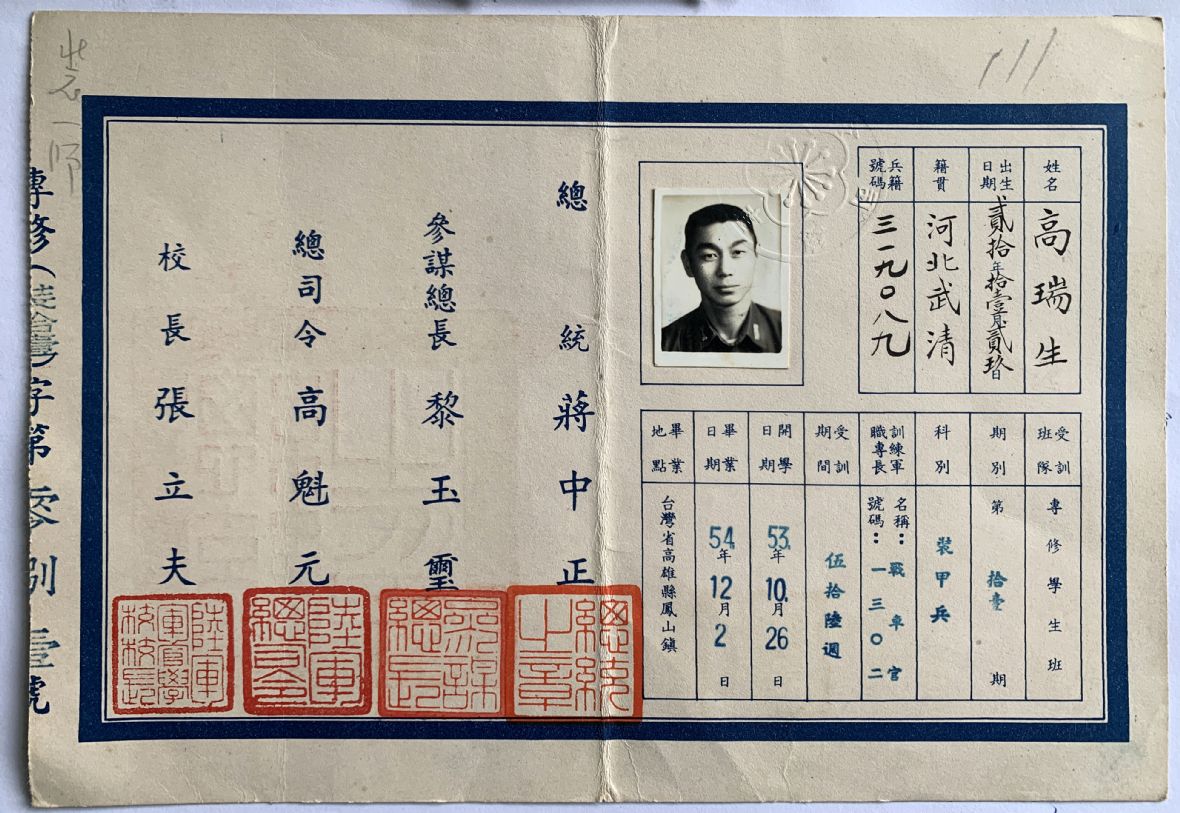 111
姓名 高瑞生
出生日期 貳拾年拾壹月貳玖日
籍貫 河北武清
兵籍號碼 三一九〇八九
受訓班隊 專修學生班
期別 第拾壹期
科別 裝甲兵
訓練軍職專長 名稱：戰車官
號碼：一三〇二
受訓期間 伍拾陸週
開學日期 53年10月26日
畢業日期 54年12月2日
畢業地點 台灣省高雄縣鳳山鎮
總統 蔣中正
總統之章
參謀總長 黎玉璽
參謀總長
總司令 高魁元
陸軍總司令
校長 張立夫
陸軍軍官學校校長
專修(拾壹)字第零捌壹號